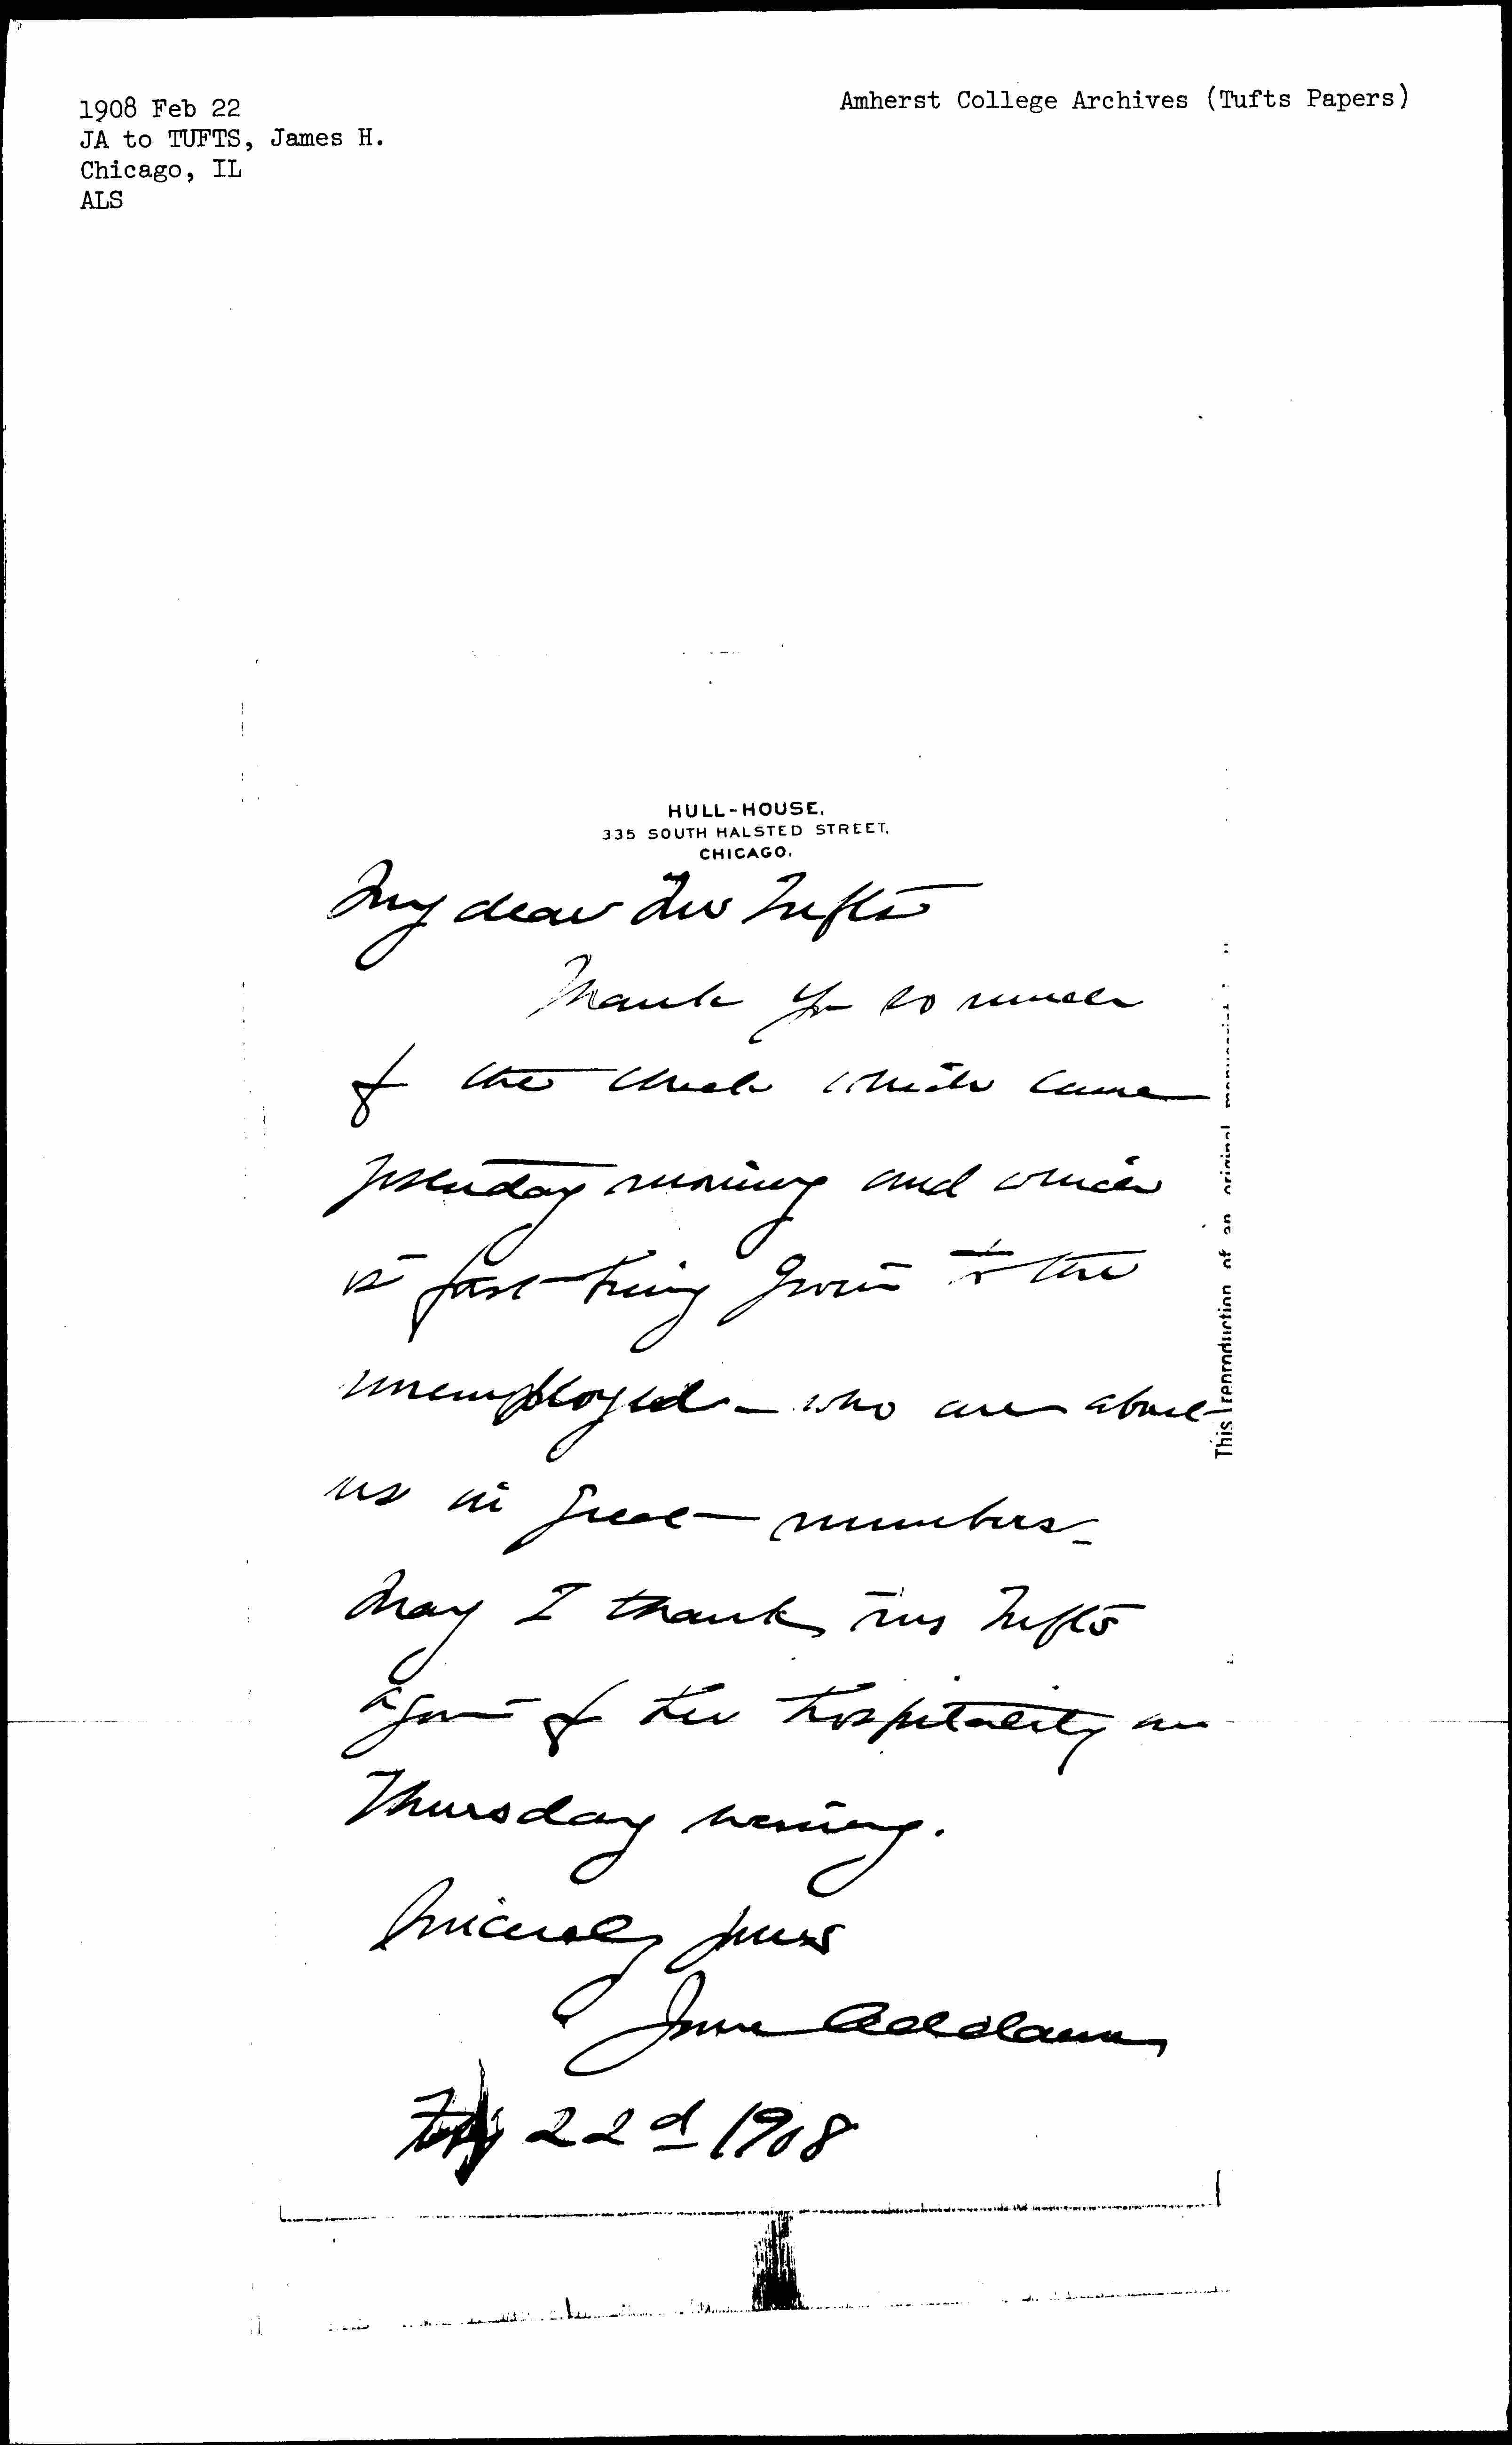 1908 Feb 22
JA to TUFTS, James H.
Chicago, IL
ALS
Amherst College Archives (Tufts Papers)
HULL-HOUSE,
335 SOUTH HALSTED STREET,
CHICAGO.
My dear Mr Tufts
Thank you so much
for the check which came
yesterday morning and which
is fast being given to the
unemployed - who are about
us in great numbers -
May I thank Mrs Tufts
again for her hospitality on
Thursday evening.
Sincerely yours
Jane Addams
Feby 22d 1908
This reproduction of an original